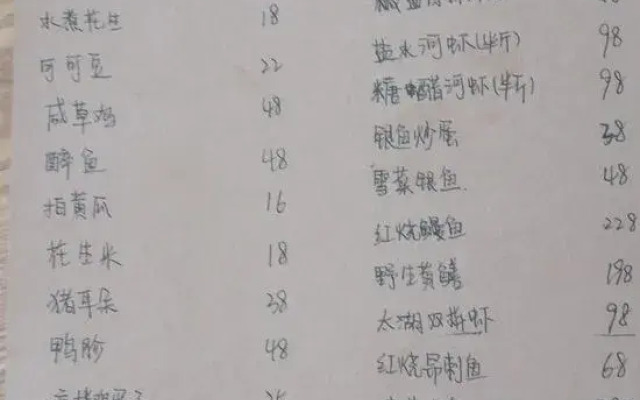 水煮花生 18
可可豆 22
咸草鸡 48
醉鱼 48
拍黄瓜 16
花生米 18
猪耳朵 38
鸭胗 48
盐水河虾(半斤) 98
糖醋河虾(半斤) 98
银鱼炒蛋 38
雪菜银鱼 48
红烧鳗鱼 228
野生黄鳝 198
太湖双拼虾 98
红烧昂刺鱼 68